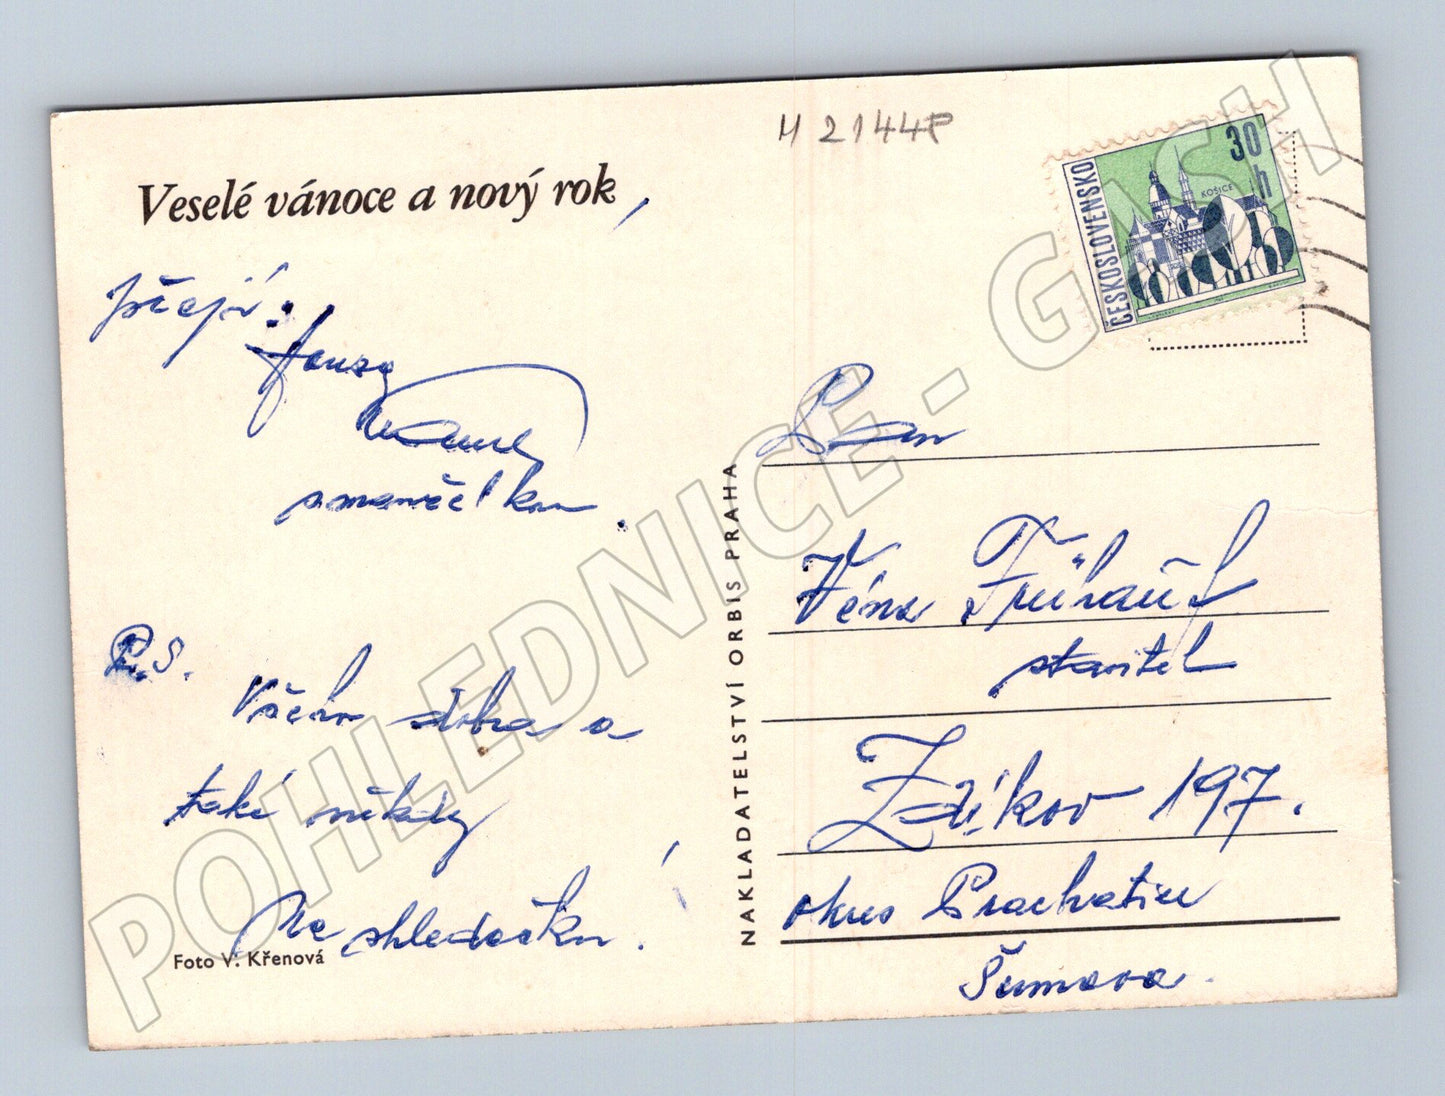 Veselé vánoce a nový rok,
přejí:
Honza
s manželkou.
P.S.
Všeho dobra a
také někdy
Na shledanou!
Foto V. Křenová
NAKLADATELSTVÍ ORBIS PRAHA
M 2144P
ČESKOSLOVENSKO
30 h
KOŠICE
Pan
Véna Frühauf
stavitel
Zdíkov 197.
okres Prachatice
Šumava.
POHLEDNICE - GASH